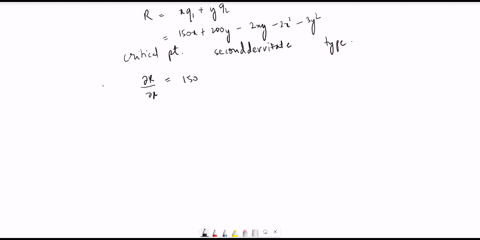 R = xq₁ + yq₂
= 150x + 200y - 2xy - 2x² - 3y²
critical pt. second dervitate type.
∂R/∂x = 150